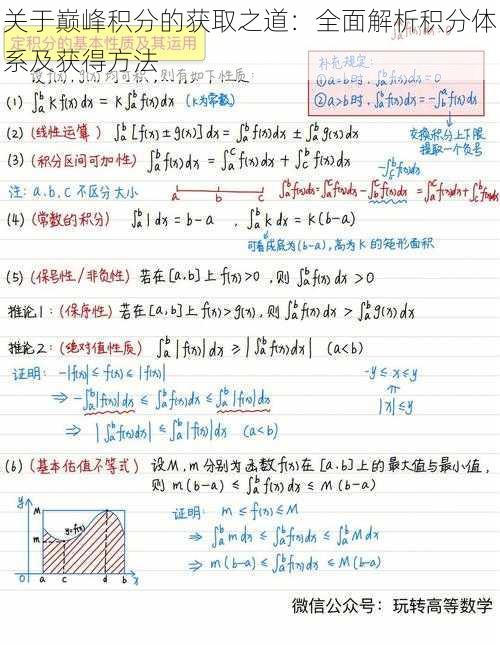 关于巅峰积分的获取之道：全面解析积分体
系及获得方法
定积分的基本性质及其运用
设f(x),g(x)均可积,则有如下性质:
补充规定:
①a=b时,∫ₐᵇf(x)dx=0
②a>b时,∫ₐᵇf(x)dx=-∫ᵦᵃf(x)dx
(1) ∫ₐᵇ k f(x)dx = k∫ₐᵇ f(x)dx (k为常数)
(2) (线性运算) ∫ₐᵇ [f(x)±g(x)]dx = ∫ₐᵇ f(x)dx ± ∫ₐᵇ g(x)dx
交换积分上下限
提取一个负号
(3) (积分区间可加性) ∫ₐᵇ f(x)dx = ∫ₐᶜ f(x)dx + ∫_c^b f(x)dx
注: a、b、c 不区分大小
a b c
∫ₐᵇf(x)dx=∫ₐᶜf(x)dx-∫_b^c f(x)dx=∫ₐᶜf(x)dx+∫_c^b f(x)dx
(4) (常数的积分) ∫ₐᵇ 1 dx = b-a , ∫ₐᵇ k dx = k(b-a)
可看成底为(b-a),高为 k 的矩形面积
(5) (保号性/非负性) 若在[a,b]上 f(x)>0 ,则 ∫ₐᵇ f(x)dx > 0
推论1: (保序性) 若在[a,b]上 f(x)>g(x), 则 ∫ₐᵇ f(x)dx > ∫ₐᵇ g(x)dx
推论2: (绝对值性质) ∫ₐᵇ |f(x)|dx ⩾ |∫ₐᵇ f(x)dx| (a<b)
证明: -|f(x)| ≤ f(x) ≤ |f(x)|
-y ≤ x ≤ y
⇒ -∫ₐᵇ|f(x)|dx ≤ ∫ₐᵇ f(x)dx ≤ ∫ₐᵇ |f(x)|dx
|x| ≤ y
⇒ |∫ₐᵇ f(x)dx| ≤ ∫ₐᵇ |f(x)|dx (a<b)
(6) (基本估值不等式) 设M,m分别为函数f(x)在[a,b]上的最大值与最小值,
则 m(b-a) ≤ ∫ₐᵇ f(x)dx ≤ M(b-a)
证明: m ≤ f(x) ≤ M
⇒ ∫ₐᵇ m dx ≤ ∫ₐᵇ f(x)dx ≤ ∫ₐᵇ M dx
⇒ m(b-a) ≤ ∫ₐᵇ f(x)dx ≤ M(b-a)
y
M
y=f(x)
m
0 a c d b x
微信公众号：玩转高等数学